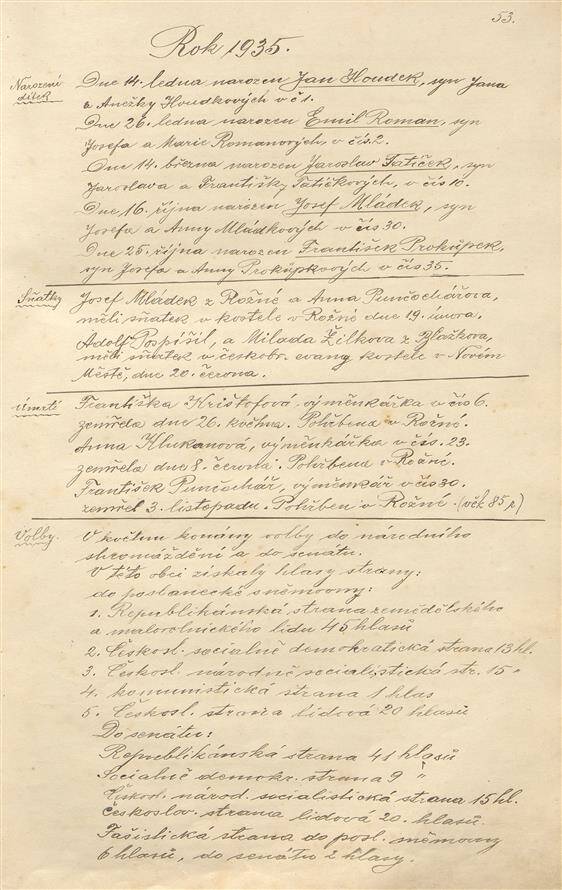 53.
Rok 1935.
Narození
dítek
Dne 14. ledna narozen Jan Houdek, syn Jana
a Anežky Houdkových v č 1.
Dne 26. ledna narozen Emil Roman, syn
Josefa a Marie Romanových, v čís. 2.
Dne 14. března narozen Jaroslav Tatíček, syn
Jaroslava a Františky Tatíčkových, v čís 10.
Dne 16. října narozen Josef Mládek, syn
Josefa a Anny Mládkových v čís 30.
Dne 25. října narozen František Prokůpek,
syn Josefa a Anny Prokůpkových v čís 35.
Sňatky
Josef Mládek z Rožné a Anna Punčochářova,
měli sňatek v kostele v Rožné dne 19. února.
Adolf Pospíšil, a Milada Žilkova z Blažkova,
měli sňatek v českobr. evang kostele v Novém
Městě, dne 20. června.
Úmrtí
Františka Krištofová, výměnkářka v čís 6.
zemřela dne 26. května. Pohřbena v Rožné.
Anna Klukanová, výměnkářka v čís. 23.
zemřela dne 8. června. Pohřbena v Rožné.
František Punčochář, výměnkář v čís 30.
zemřel 3. listopadu. Pohřben v Rožné. (věk 85 r)
Volby.
V květnu konány volby do národního
shromáždění a do senátu.
V této obci získaly hlasy strany:
do poslanecké sněmovny:
1. Republikánská strana zemědělského
a malorolnického lidu 45 hlasů
2. Českosl. socialně demokratická strana 13 hl.
3. Českosl. národně socialistická str. 15 "
4. komunistická strana 1 hlas
5. Českosl. strana lidová 20 hlasů
Do senátu:
Republikánská strana 41 hlasů
Socialně demokr. strana 9 "
Českosl. národ. socialistická strana 15 hl.
Českoslov. strana lidová 20. hlasů.
Fašistická strana do posl. sněmovny
6 hlasů, do senátu 2 hlasy.